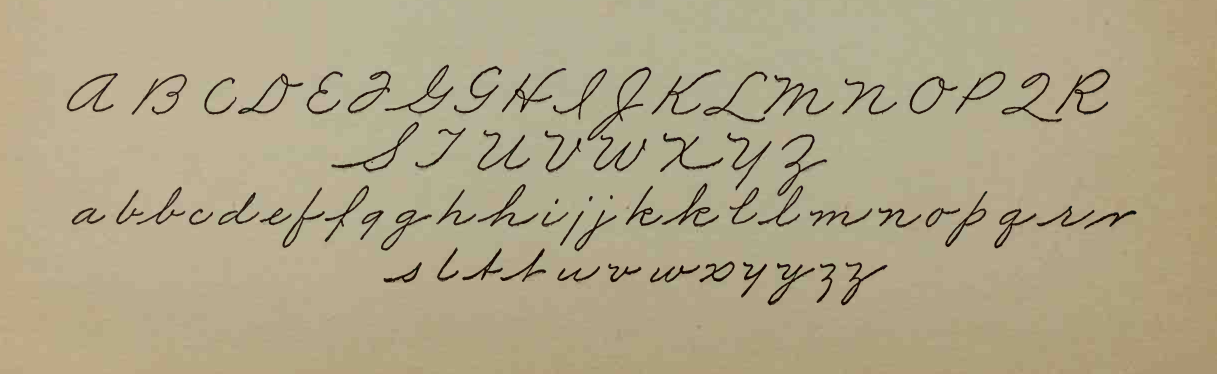 A B C D E F G G H I J K L M N O P Q R
S T U V W X Y Z
a b b c d e f f g g h h i j j k k l l m n o p q r r
s t t t u v w x y y z z